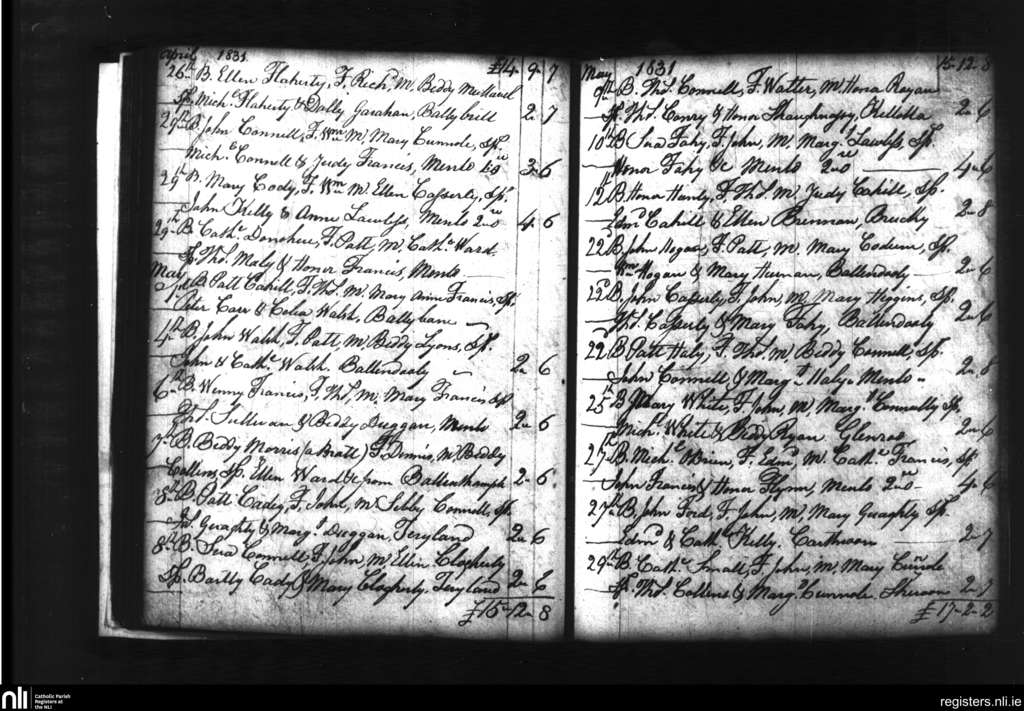 April 1831 £14 - 9 - 7
26th B. Ellen Flaherty, F. Richd, M. Biddy
Sp. Michl Flaherty & Dolly Garahan, Ballybrill 2 - 7
27th B. John Connell, F. Wm M. Mary Cunnole, Sp.
Michl Connell & Judy Francis, Menlo 3 - 6
29th B. Mary Cody, F. Wm M. Ellen Casserly, Sp.
John Kelly & Anne Lawless, Menlo 4 - 6
29th B. Cathe Donohue, F. Patt, M. Cathe Ward
Sp. Thos. Maly & Honor Francis, Menlo
May
B. Patt Cahill, F. Thos. M. Mary Anne Francis, Sp.
Peter Carr & Celia Walsh, Ballybane
4th B. John Walsh, F. Patt M. Biddy Lyons, Sp.
John & Cathe Walsh Ballendooly 2 - 6
6th B. Winny Francis, F. Thos. M. Mary Francis Sp
Sullivan & Biddy Duggan, Menlo 2 - 6
7th B. Biddy Morris (a Bratt) F. Dennis, M. Biddy
Collins, Sp. Ellen Ward &c from 2 - 6
8th B. Patt Cady, F. John, M. Sibby Connell, Sp.
Geraghty & Margt Duggan, Teryland 2 - 6
8th B. Connell, F. John, M. Ellen Clogherty
Sp. Bartly Cady & Mary Clogherty, Teryland 2 - 6
£15 - 12 - 8
May 1831 15 - 12 - 8
9th B. Thos. Connell, F. Walter, M. Honor Ragan
Sp. Thos. Conry & Honor Shaughnessy, 2 - 6
10th B. Fahy, F. John, M. Margt Lawless, Sp.
Honor Fahy &c Menlo 4 - 6
12th B. Honor Hanly, F. Thos. M. Judy Cahill, Sp.
Edmd Cahill & Ellen Brennan, 2 - 8
22d B. John Hogan, F. Patt, M. Mary Sp.
Wm Hogan & Mary Heenan, Ballendooly 2 - 6
22d B. John Casserly, F. John, M. Mary Higgins, Sp.
Thos. Casserly & Mary Fahy, Ballendooly 2 - 6
22d B. Patt Haly, F. Thos. M. Biddy Connell, Sp.
John Connell & Margt Haly - Menlo 2 - 8
25th B. Mary White, F. John, M. Margt Connolly Sp.
Michl White & Biddy Ryan Glenroe 2 - 6
27th B. Michl Brien, F. Edmd, M. Cathe Francis, Sp
John Francis & Honor Flynn, Menlo 4 - 6
27th B. John Ford, F. John, M. Mary Geraghty Sp.
Edmd & Cathe Kelly, 2 - 7
29th B. Cathe Small, F. John, M. Mary Cunnole
Sp. Thos. Collins & Margt Cunnole 2 - 7
£17 - 2 - 2
nli Catholic Parish
Registers at
the NLI
registers.nli.ie